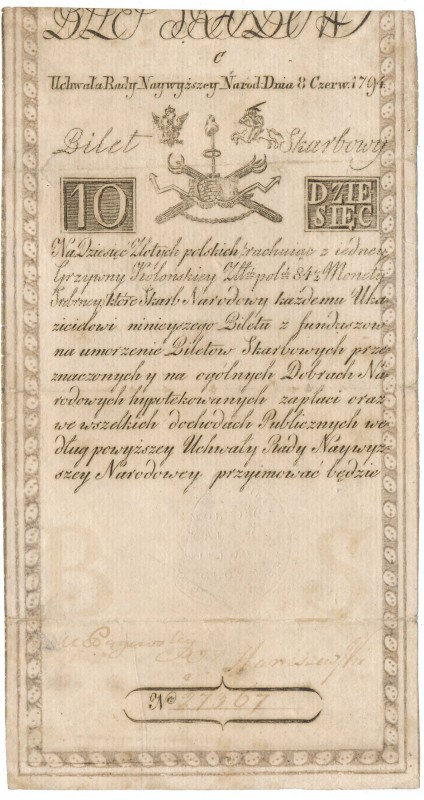 BILET SKARBOWY
C
Uchwała Rady Naywyższey Narod: Dnia 8 Czerw: 1794.
Bilet Skarbowy
10 DZIE
SIĘC
Na Dziesięć Złotych polskich rachuiąc z iedney
Grzywny Kolońskiey Złł: pol: 84½ Monety
Srebrney, które Skarb Narodowy każdemu Uka
zicielowi ninieyszego Biletu z funduszow
na umorzenie Biletow Skarbowych prze
znaczonych y na ogólnych Dobrach Na
rodowych hypotekowanych zapłaci oraz
we wszelkich dochodach Publicznych we
dług powyższey Uchwały Rady Naywyż
szey Narodowey przyimować będzie
B S
No 27667